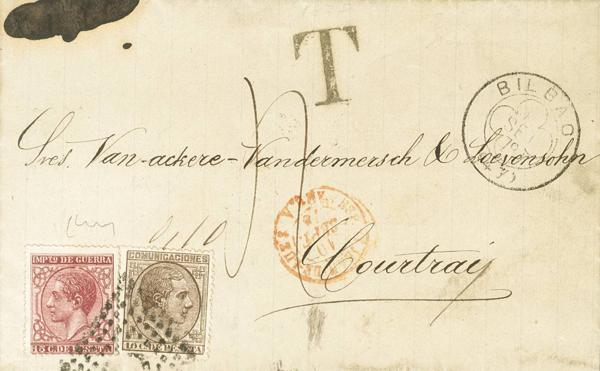 T
BILBAO
Sres. Van-ackere-Vandermersch & Loevensohn
Courtrai
IMPTO DE GUERRA
15 C. DE PESETA
COMUNICACIONES
10 C. DE PESETA